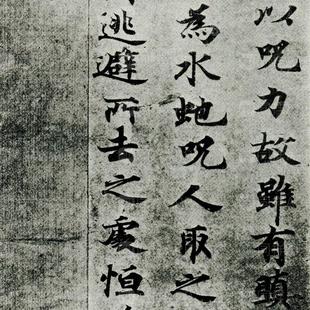 以呪力故雖有
為水虵呪人取之
逃避所去之處恒